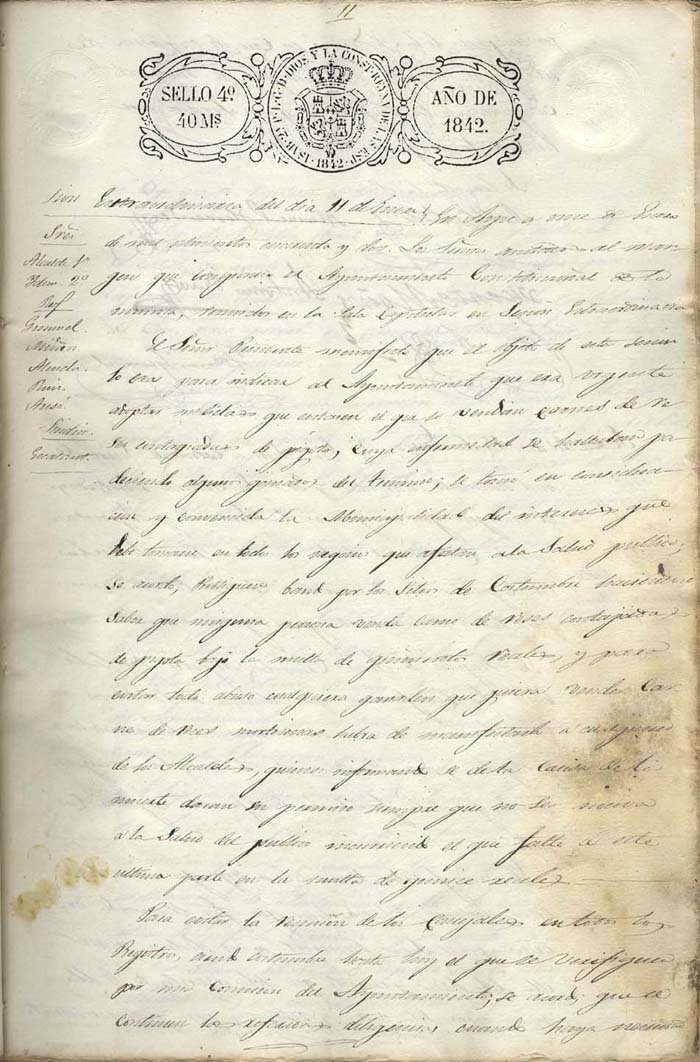 11
SELLO 4º
40 Ms
ISAB. 2ª P. L. G. D. DIOS Y LA CONST. REYNA DE LAS ESP.
1842
AÑO DE
1842.
Extraordinaria del dia 11 de Enero
En a once de Enero
de mil ochocientos cuarenta y dos. Los Señores anotados al mar-
gen que componen el Ayuntamiento Constitucional de la
misma, reunidos en la Sala Capitular en Sesion Extraordinaria
Sres
Alcalde 1º
Idem. 2º
El Señor Presidente manifestó que el objeto de esta sesion
lo era para indicar al Ayuntamiento que era urgente
adoptar medidas que el qe se vendan carnes de re
ses contagiadas de pigota, cuya enfermedad se hallaban pa
deciendo algunos ganados del termino; se tomó en considera-
cion y convencida la Municipalidad del interes que
debe tomarse en todo los negocios que afectan a la Salud publica;
se acordó; bando por los Sitios de Costumbre haciendo
Saber que ninguna persona venda carne de reses contagiadas
de pigota bajo la multa de quinientos reales, y para
evitar todo abuso cualquiera ganadero que quiera vender Car-
ne de reses mortecinas habra de manifestarlo á cualquiera
de los Alcaldes, quienes informandose de la causa de la
muerte daran su permiso siempre que no sea nociva
a la Salud del publico incurriendo el que falte á esta
ultima parte en la multa de quince reales
Para evitar la reunion de los Concejales en todos los
Registros, siendo costumbre hasta hoy el que se verifiquen
por una Comision del Ayuntamiento; se acordó que se
continuen las diligencias, cuando haya necesidad